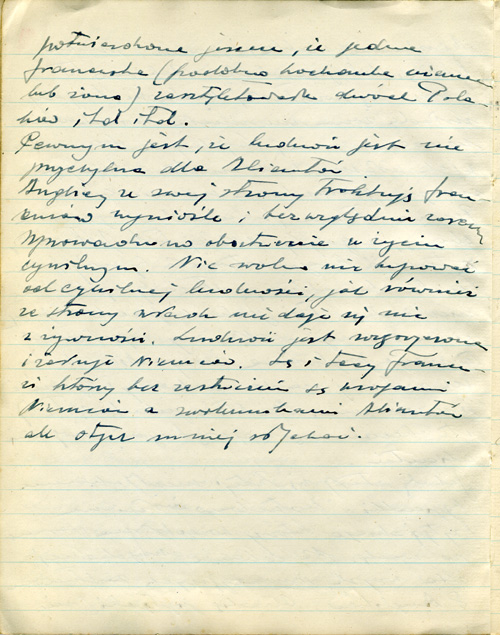 potwierdzone jeszcze, że jedna
francuska (podobno kochanka niemca
lub żona) zasztyletowała dwóch Pola-
ków, itd itd.
Pewnym jest, że ludność jest nie
przychylna dla Aliantów
Anglicy ze swej strony traktują fran-
cuzów wyniośle i bezwzględnie zaraz
wprowadzono obostrzenie w życiu
cywilnym. Nic wolno nie kupować
od cywilnej ludności, jak również
ze strony władz nie daje się nic
z żywności. Ludność jest rozgoryczona
i żałuje Niemców. Są i tacy francu-
zi którzy bez zastrzeżeń są wrogami
Niemców a zwolennikami Aliantów
ale o tych mniej słychać.